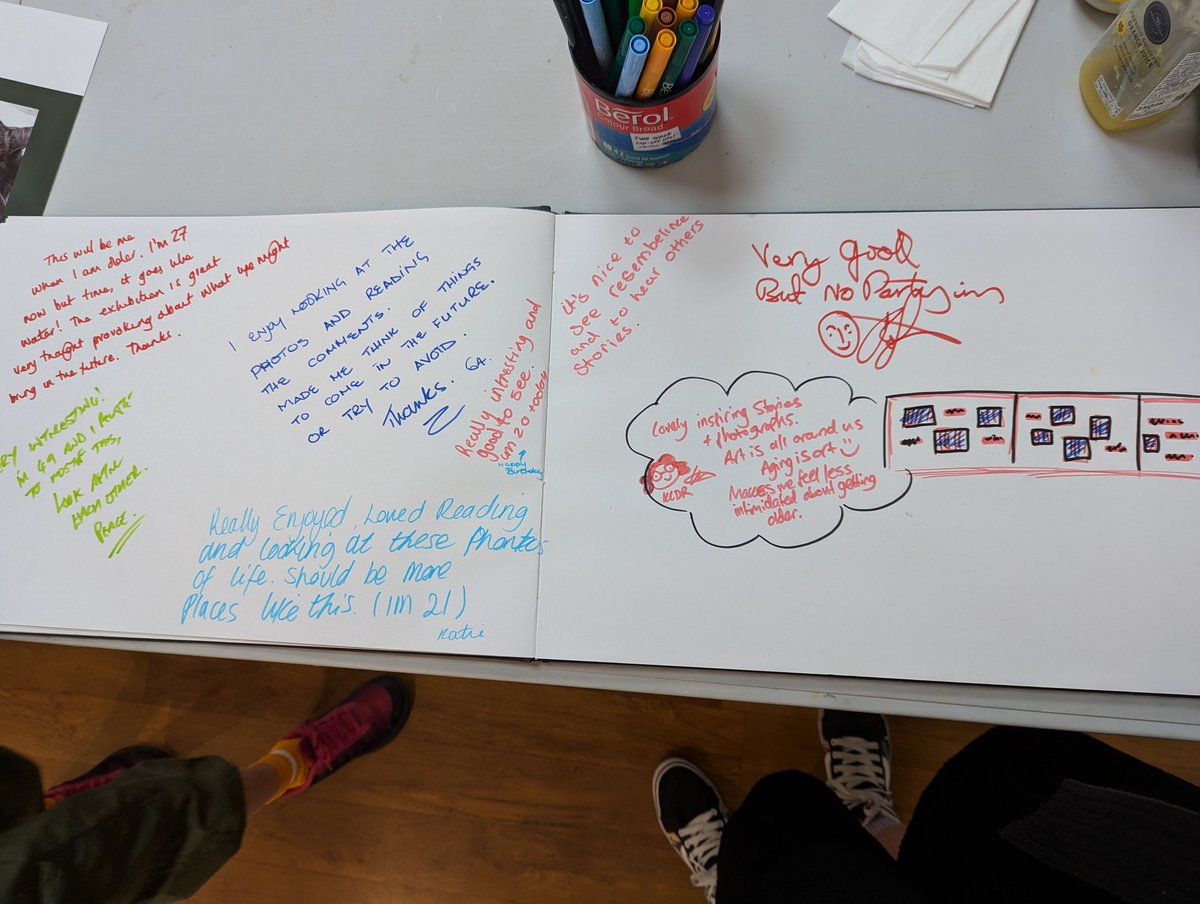 This will be me
when I am older. I'm 27
now but time, it goes like
water! The exhibition is great
very thought provoking about what life might
bring in the future. Thanks.
I ENJOY LOOKING AT THE
PHOTOS AND READING
THE COMMENTS.
MADE ME THINK OF THINGS
TO COME IN THE FUTURE.
OR TRY TO AVOID.
Thanks. GA.
Really intresting and
good to see.
im 20 today
Happy
Birthday
INTRESTING!
M 49 AND I
TO
LOOK AFTER
EACH OTHER.
PEACE.
Really Enjoyed, Loved Reading
and looking at these
of life. Should be more
Places like this. (IM 21)
Katie
it's nice to
see resembelince
and to hear others
Stories.
Very good
But No
Lovely inspiring Stories
+ photographs.
Art is all around us
Aging is art
Makes me feel less
intimidated about getting
older.
KLDR
Berol
Colour Broad
Two week
cap-off life!
42